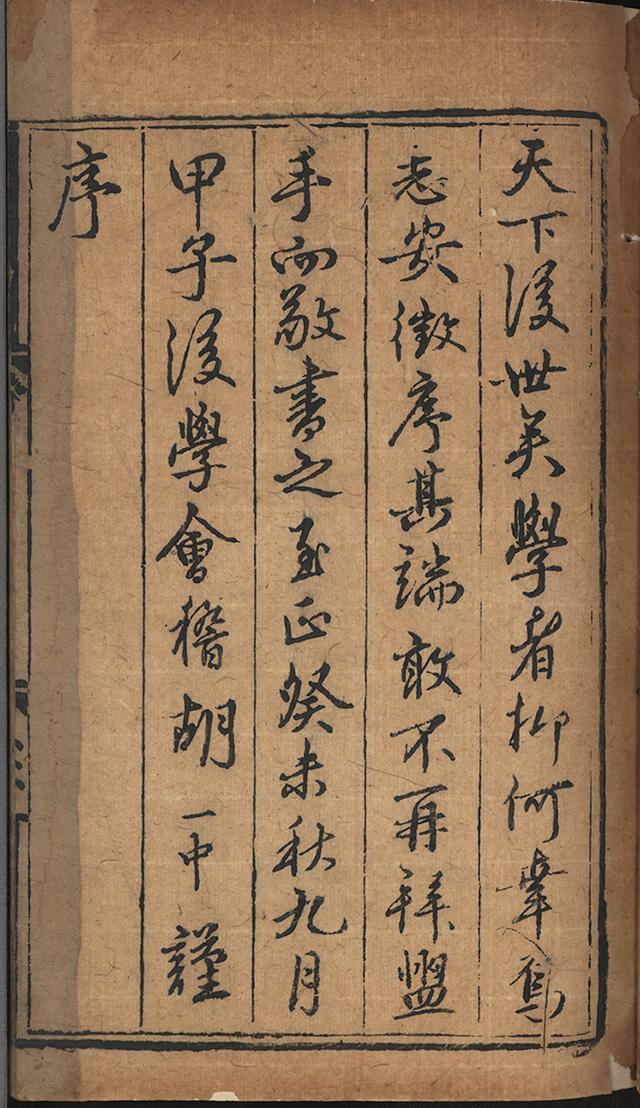 天下後世矣學者抑何幸焉
志安徵序其端敢不再拜盥
手而敬書之至正癸未秋九月
甲子後學會稽胡一中謹
序